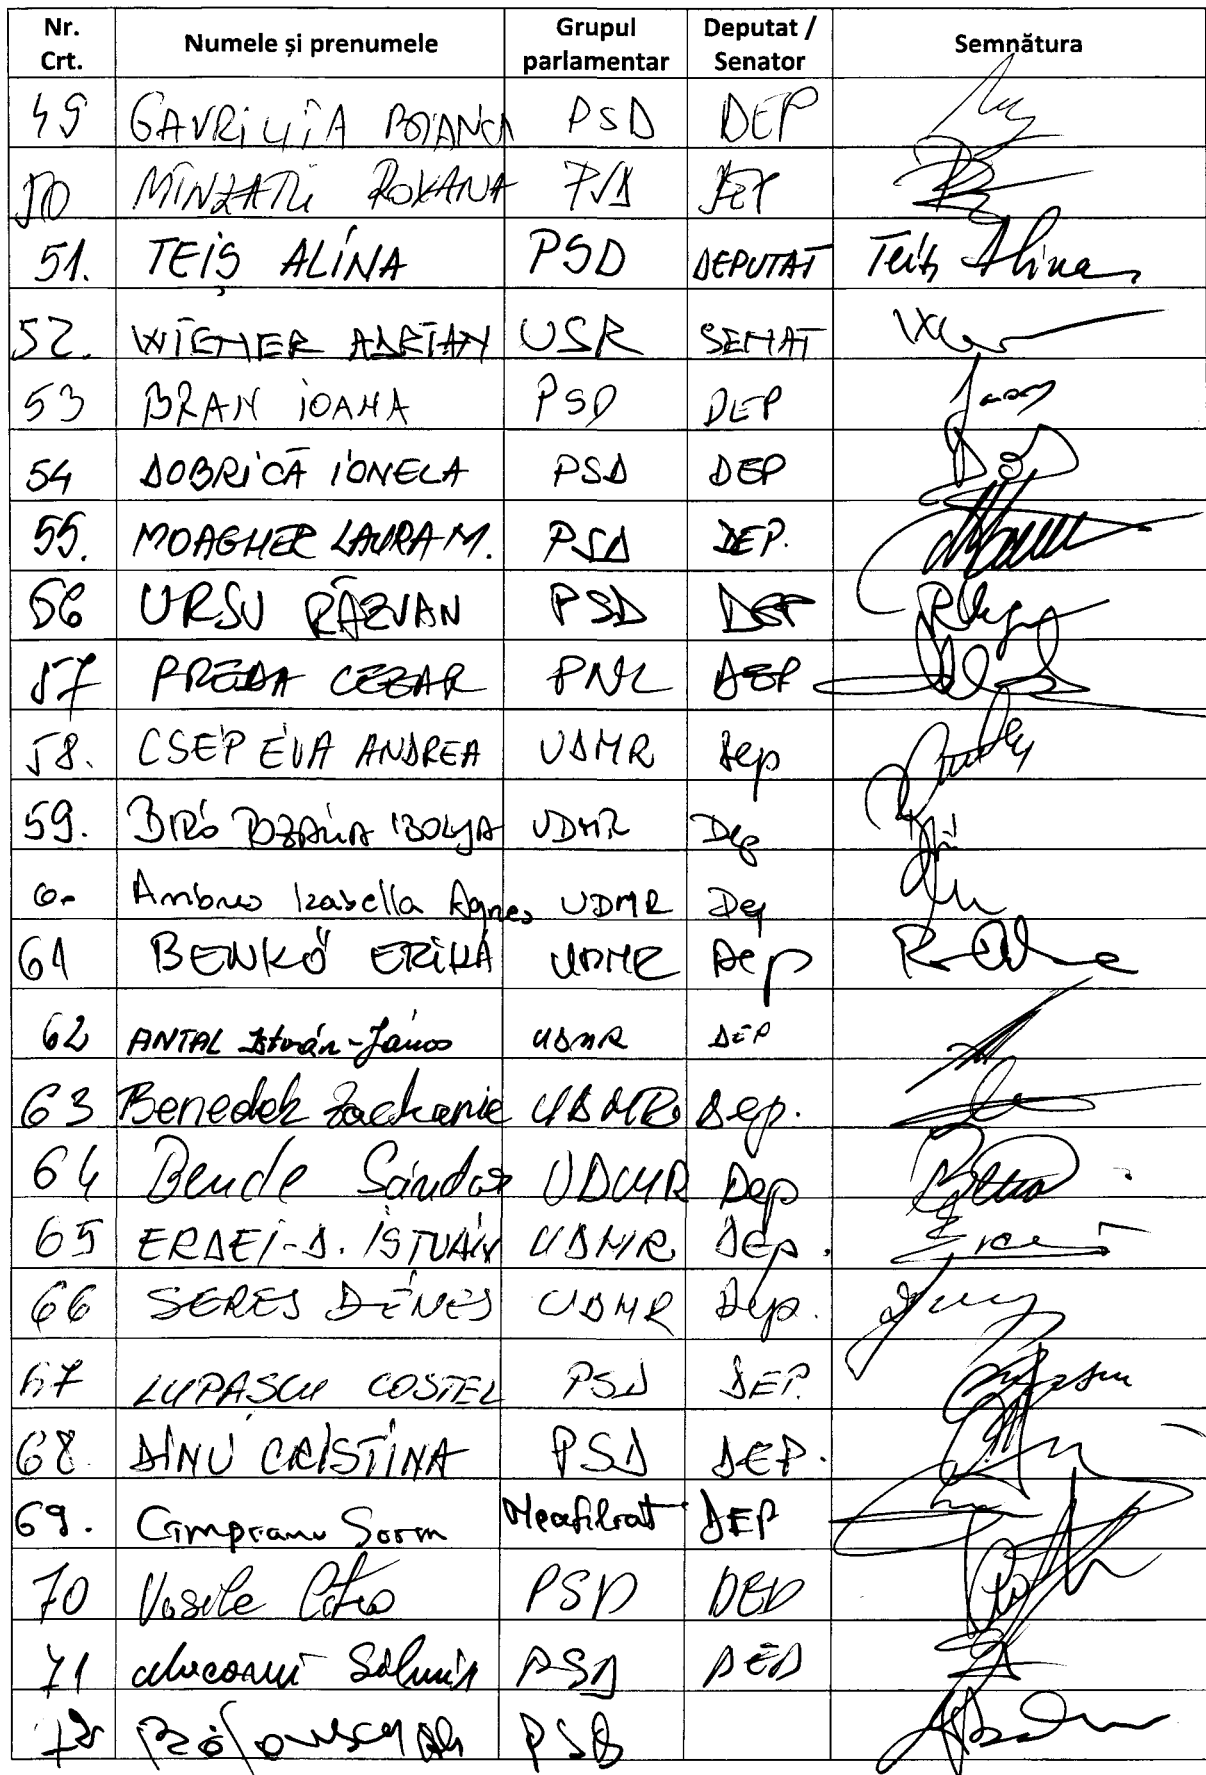 Nr. Crt. Numele și prenumele Grupul parlamentar Deputat / Senator Semnătura
49 GAVRILIȚĂ BIANCA PSD DEP
50 MÎNZATU ROXANA PSD DEP
51. TEIȘ ALINA PSD DEPUTAT Teiș Alina
52. WIENER ADRIAN USR SENAT
53 BRAN IOANA PSD DEP
54 DOBRICĂ IONELA PSD DEP
55. MOAGHER LAURA M. PSD DEP.
56 URSU RĂZVAN PSD DEP
57 PREDA CEZAR PNL DEP
58. CSEP ÉVA ANDREA UDMR Dep
59. BIRÓ ROZALIA IBOLYA UDMR Dep
60 Ambrus Izabella Agnes UDMR Dep
61 BENKŐ ERIKA UDMR Dep
62 ANTAL István-János UDMR DEP
63 Benedek Zacharie UDMR Dep.
64 Bende Sándor UDMR Dep
65 ERDEI-D. ISTVÁN UDMR Dep.
66 SERES DÉNES UDMR Dep.
67 LUPAȘCU COSTEL PSD DEP.
68 DINU CRISTINA PSD DEP.
69. Cîmpeanu Sorin Neafiliat DEP
70 Vasile Citea PSD DEP
71 PSD DEP
72 PSD